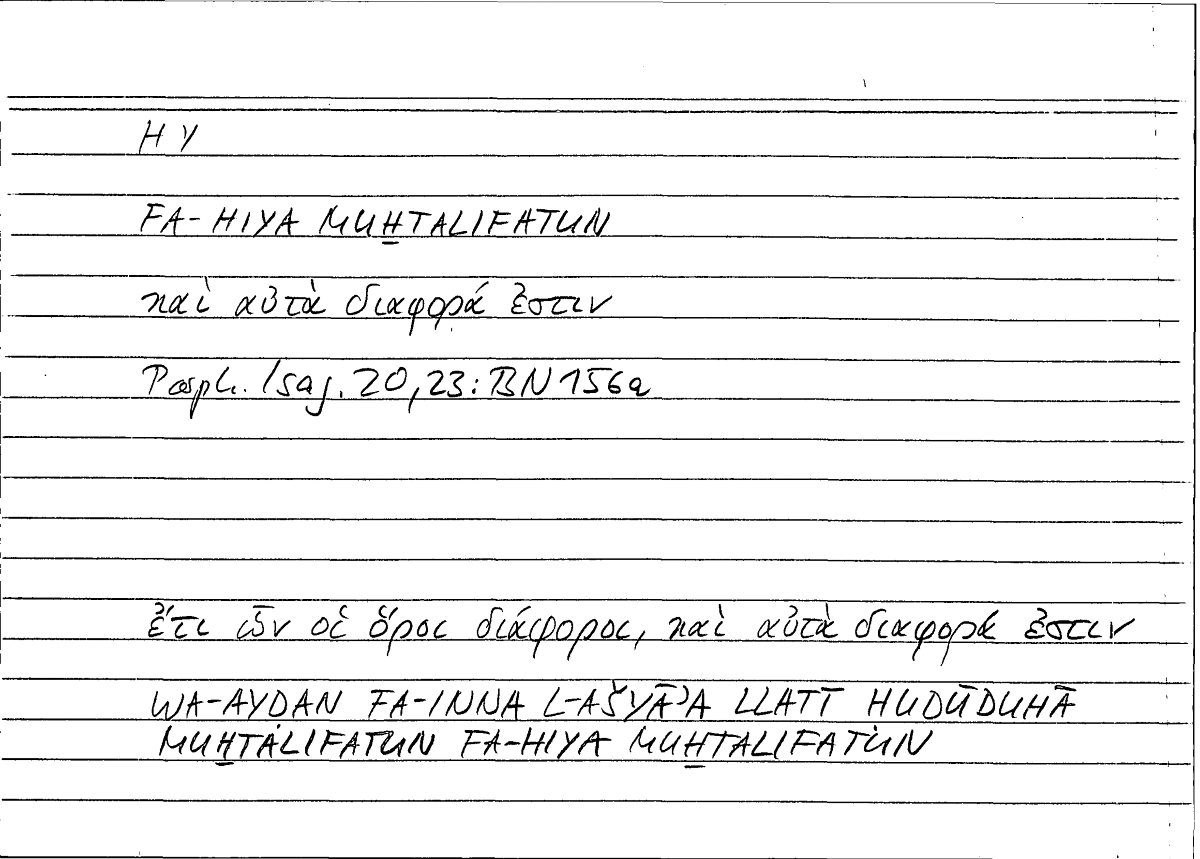 HY
FA-HIYA MUH̲TALIFATUN
καὶ αὐτὰ διαφορά ἐστιν
Porph. Isag. 20,23: BN 156a
ἔτι ὧν οἱ ὅροι διάφοροι, καὶ αὐτὰ διαφορά ἐστιν
WA-AYḌAN FA-INNA L-AŠYĀʾA LLATĪ ḤUDŪDUHĀ
MUH̲TALIFATUN FA-HIYA MUH̲TALIFATUN